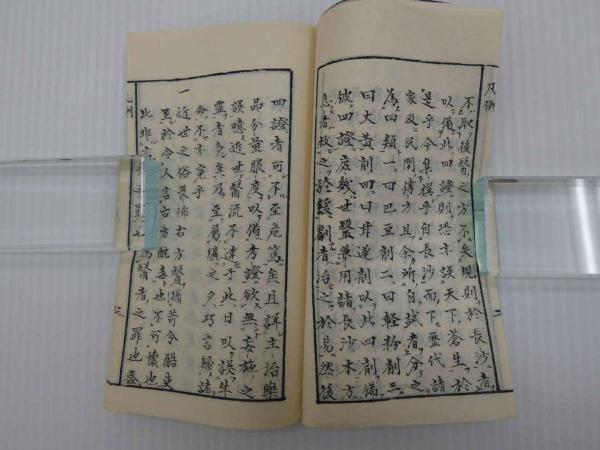 凡例
不取後醫之方不失規則於長沙者
以備此四證則恐亦誤天下蒼生於
是乎今集撰乎自長沙而下歷代諸
家及民間傳方且余所自試者分之
為四類一曰巴豆劑二曰輕粉劑三
曰大黃劑四曰甘遂劑以此四劑備
彼四證庶幾世醫兼用諸長沙本方
急者救之於緩劇者治之於易然後
四證者可不至危篤矣且詳主治藥
品分量服度以備考證欲無妄施之
誤噫近世醫流不達于此日以誤生
靈者多矣及至屬纊之夕巧言歸諸
命不亦冤乎
一
近世之俗畏怖古方醫猶苛令酷吏
至於令人言古方能毒也不可懷也
此非 之罪也為醫者之罪也蓋